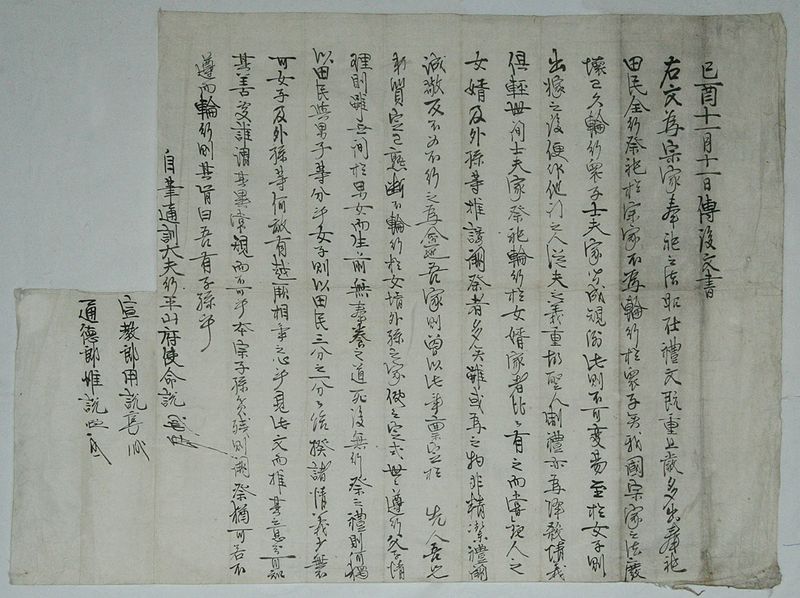 己酉十一月十一日傳後文書
右文爲宗家奉祀之法昭在禮文旣重且嚴多出奉祀
田民全行祭祀於宗家不爲輪行於衆子矣我國宗家之法廢
壞已久輪行衆子士夫家皆成規例此則不可變易至於女子則
出嫁之後便作他門之人從夫之義重故聖人制禮亦爲降殺情義
俱輕世間士夫家祭祀輪行於女婿家者比比有之而嘗觀人之
女婿及外孫等推諉闕祭者多矣雖或爲之物非精潔禮闕
誠敬反不如不行之爲愈吾家則曾以此事稟定於 先人吾兄
弟質定已熟斷不輪行於女婿外孫之家依之定式世世遵行父子情
理則雖無間於男女而生前無奉養之道死後無行祭之禮則何獨
以田民與男子等分乎女子則以田民三分之一分給揆諸情義少無不
可女子及外孫等何敢有越厭相爭之心乎見此文而推其意則可知
其善處誰謂異常規而不可乎本宗子孫貧殘則闕祭猶可若不
遵而輪行則其肯曰吾有子孫乎
自筆通訓大夫行平山府使命說
宣敎郎用說
通德郎惟說